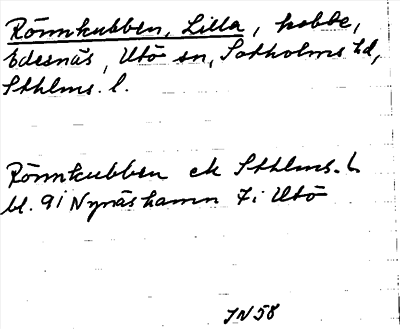 Rönnkubben, Lilla, kobbe,
Edesnäs, Utö sn, Sotholms hd,
Sthlms. l.
Rönnkubben ek Sthlms. l.
bl. 91 Nynäshamn 7i Utö
IN 58